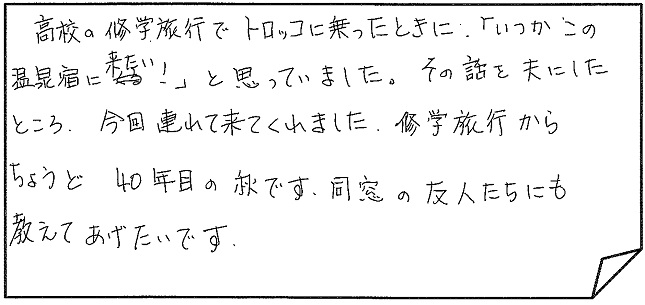 高校の修学旅行でトロッコに乗ったときに、「いつかこの
温泉宿に来たい!」と思っていました。その話を夫にした
ところ、今回連れて来てくれました。修学旅行から
ちょうど 40年目の秋です。同窓の友人たちにも
教えてあげたいです。